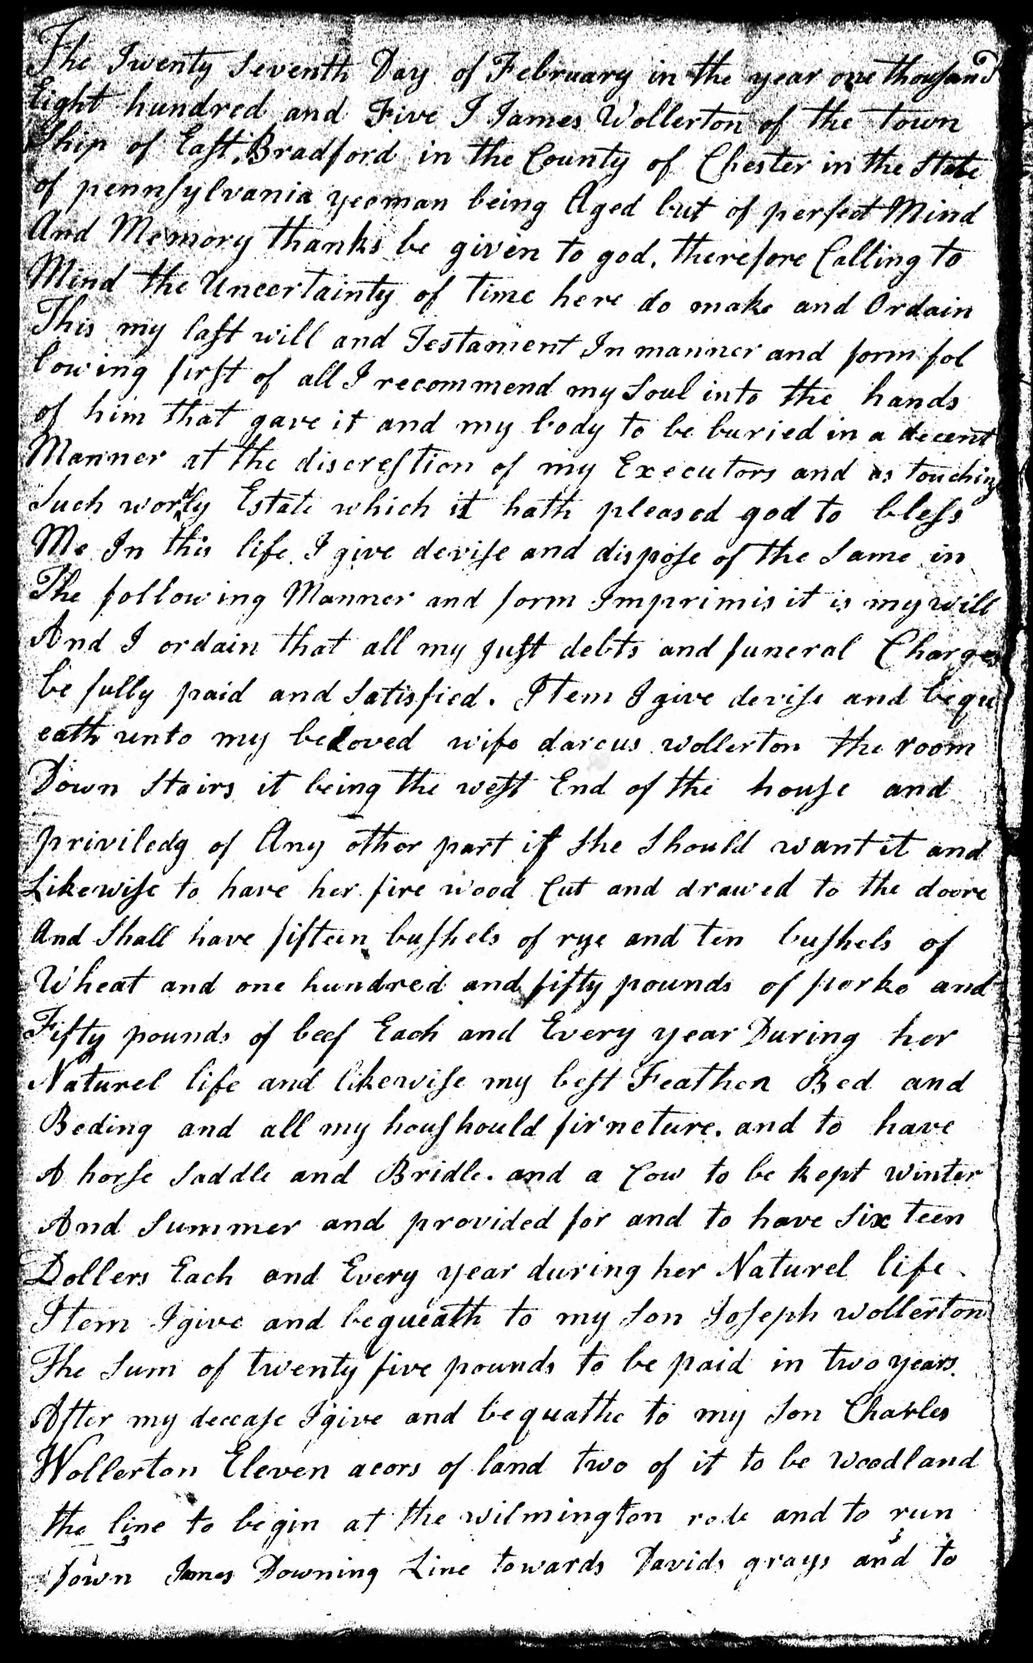 The Twenty Seventh Day of February in the year one thousand
Eight hundred and Five I James Wollerton of the town
Ship of East Bradford in the County of Chester in the State
of pennsylvania yeoman being Aged but of perfect Mind
And Memory thanks be given to god, therefore Calling to
Mind the Uncertainty of time here do make and Ordain
This my last will and Testament In manner and form fol
lowing first of all I recommend my Soul into the hands
of him that gave it and my body to be buried in a decent
Manner at the discrestion of my Executors and as touching
Such wordly Estate which it hath pleased god to bless
Me In this life I give devise and dispose of the Same in
The following Manner and form Imprimis it is my will
And I ordain that all my just debts and funeral Charges
be fully paid and Satisfied. Item I give devise and bequ
eath unto my beloved wife darcus wollerton the room
Down Stairs it being the west End of the house and
priviledg of Any other part if She Should want it and
Likewise to have her fire wood Cut and drawed to the doore
And Shall have fifteen bushels of rye and ten bushels of
Wheat and one hundred and fifty pounds of porke and
Fifty pounds of beef Each and Every year During her
Naturel life and likewise my best Feathen Bed and
Beding and all my houshould firneture. and to have
A horse Saddle and Bridle. and a Cow to be kept winter
And Summer and provided for and to have Six teen
Dollers Each and Every year during her Naturel life
Item I give and bequeath to my Son Joseph wollerton
The Sum of twenty five pounds to be paid in two years
After my decease I give and bequathe to my Son Charles
Wollerton Eleven acors of land two of it to be woodland
the line to begin at the wilmington rode and to run
down James Downing Line towards Davids grays and to